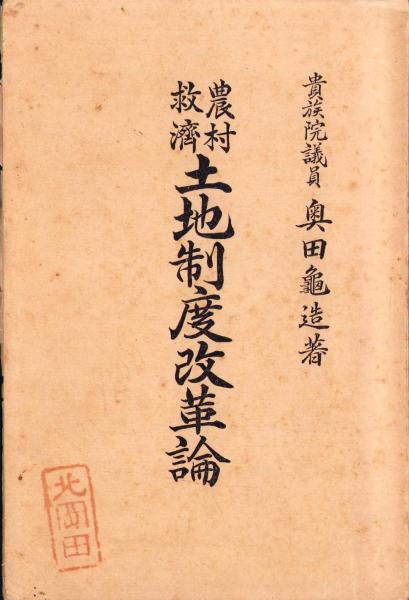 貴族院議員 奥田龜造著
農村
救濟
土地制度改革論
北岡田